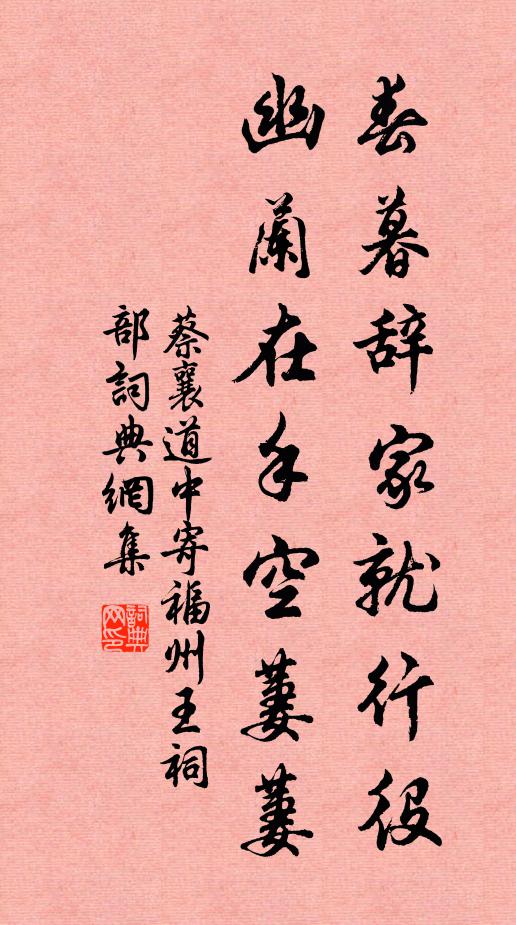 春暮辞家就行役
幽蘭在手空萋萋
蔡襄道中寄福州王祠
部詞典網集
詞典网印